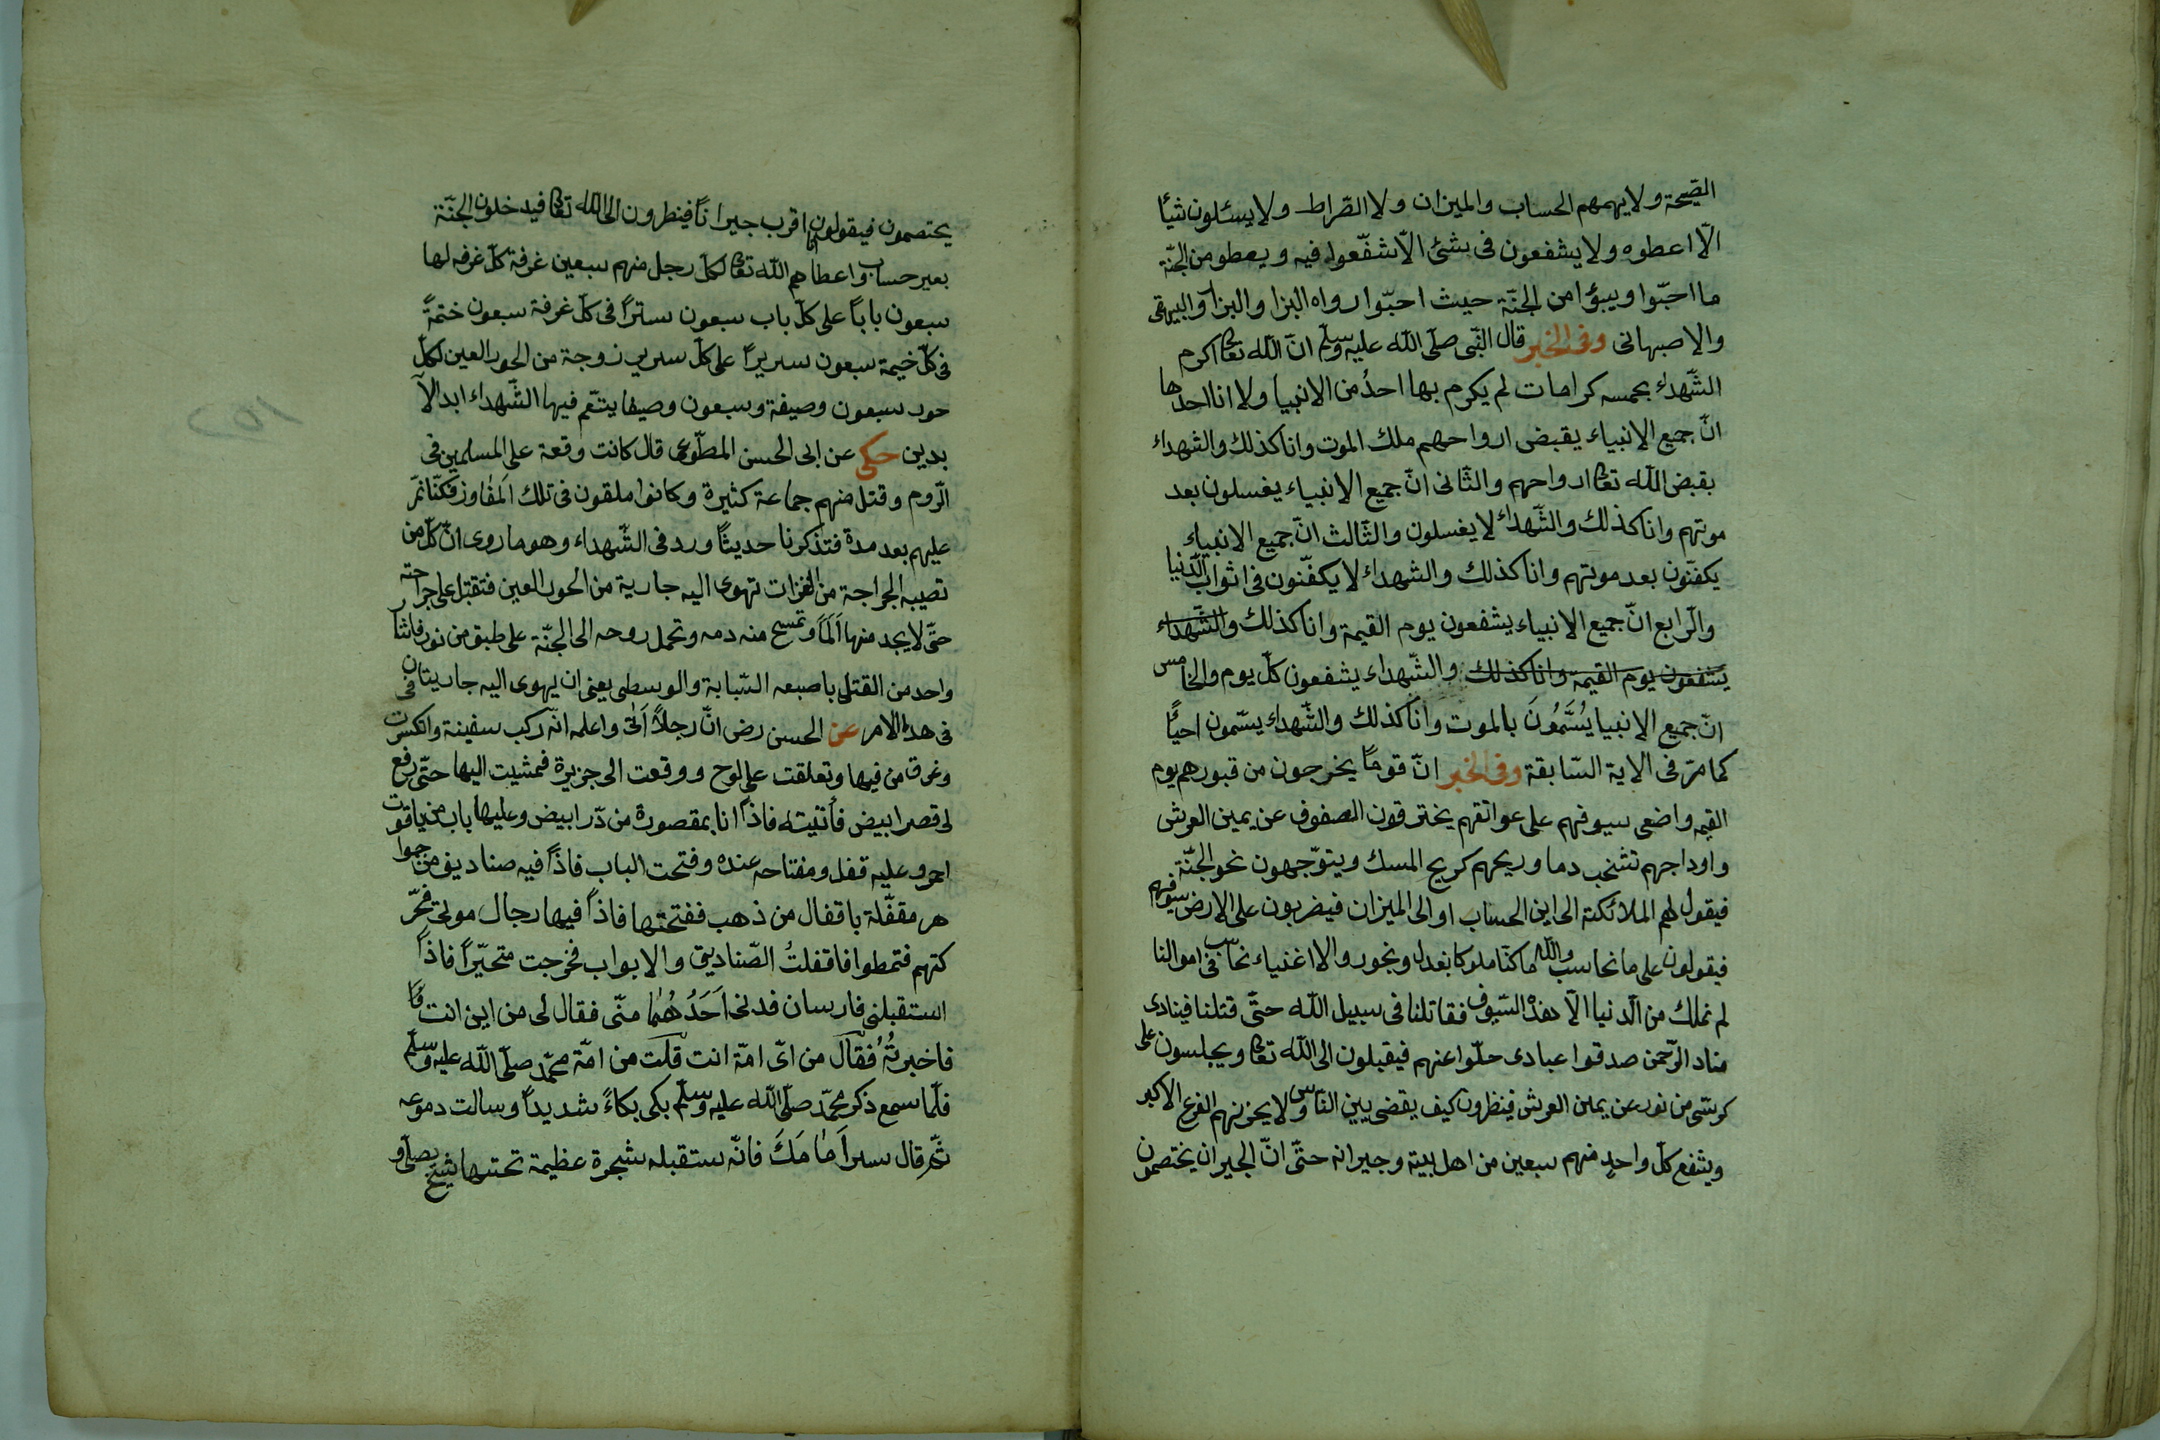 الصّيحة ولا يهمهم الحساب والميزان ولا الصّراط ولا يسئلون شيأ
الّا اعطوه ولا يشفعون فى شئ الّا شفّعوا فيه ويعطو من الجنّة
ما احبّوا ويبوٴا من الجنّة حيث احبّوا رواه البزا والبزا والبيهقى
والاصبهانى وفى الخبر قال النّبى صلّى الله عليه وسلّم انّ الله تعالى اكرم
الشّهداء بخمسه كرامات لم يكرم بها احدُ من الانبيا ولا انا احدها
انّ جميع الانبياء يقبض ارواحهم ملك الموت وانا كذلك والشهداء
يقبض الله تعالى ارواحهم والثّانى انّ جميع الانبياء يغسلون بعد
موتهم وانا كذلك والشّهداء لا يغسلون والثّالث انّ جميع الانبياء
يكفّنون بعد موتهم وانا كذلك والشهداء لا يكفّنون فى اثواب الدّنيا
والرّابع انّ جميع الانبياء يشفعون يوم القيمة وانا كذلك والشّهداء
يشفعون يوم القيمه وانا كذلك والشّهداء يشفعون كلّ يوم والخامس
انّ جميع الانبيا يُسَّمُونَ بالموت وانا كذلك والشّهداء يسّمون احيأً
كما مرّ فى الاية السّابقة وفى الخبر انّ قوماً يخرجون من قبورهم يوم
القيمه واضعى سيوفهم على عواتقهم يخترقون الصفوف عن يمين العرش
واوداجهم تشخب دما وريحهم كريح المسك ويتوّجهون نحو الجنّة
فيقول لهم الملائكة الى اين الحساب او الى الميزان فيضربون على الارض سيوفهم
فيقولون على ما نحاسب والله ما كنّا ملوكا نعدل ونجور والا اغنياء نحاسب فى اموالنا
لم نملك من الدّنيا الّا هذه السّيوف فقاتلنا فى سبيل الله حتّى قتلنا فينادى
مناد الرّحمن صدقوا عبادى حلّوا عنهم فيقبلون الى الله تعالى ويجلسون على
كرسّى من نور عن يمين العرش فينظرون كيف يقضى بين النّاس ولا يحزنهم الفزع الاكبر
ويشفع كلّ واحدٍ منهم سبعين من اهل بيته وجيرانه حتّى انّ الجيران يختصمون
يختصمون فيقولون انا اقرب جيراناً فينظرون الى الله تعالى فيدخلون الجنّة
بغير حساب واعطاهم الله تعالى لكلّ رجل منهم سبعين غرفة كلّ غرفه لها
سبعون باباً على كلّ باب سبعون ستراً فى كلّ غرفة سبعون ختمةً
فى كلّ خيمة سبعون سريراً على كلّ سرير زوجة من الحور العين لكلّ
حور سبعون وصيفة وسبعون وصيفا يتنّعم فيها الشّهداء ابد الآ
بدين حكى عن ابى الحسن المطّوعى قال كانت وقعة على المسلمين فى
الرّوم وقتل منهم جماعة كثيرة وكانوا ملقون فى تلك المفاوز فكنّا نمّر
عليهم بعد مدة فتذكرنا حديثًا ورد فى الشّهداء وهو ما روى انّ كلّ من
تصيبه الجراحة من الغزات تهوى اليه جارية من الحور العين فتقبّل على جراحته
حتّى لا يجد منها اَلَماً وتمسح منه دمه وتحمل روحه الى الجنّة على طبق من نور فاشار
واحد من القتلى باصبعه السّبابة والوسطى يعنى ان يهوى اليه جاريتان فى
فى هذا الامر عن الحسن رض انّ رجلاً اَتٰى واعلمه انّه ركب سفينة وانكسرت
وغرق من فيها وتعلقت على لوح ووقعت الى جزيرة فمشيت اليها حتّى رفع
لى قصر ابيض فأتيته فاذاً انا بمقصورة من دّر ابيض وعليها باب من ياقوت
احمر وعليه قفل ومفتاحه عنده وفتحت الباب فاذاً فيه صناديق من جوا
هر مقفّلة باقفال من ذهب ففتحتها فاذاً فيها رجال موتى فحّر
كتهم فتمطوا فاقفلتُ الصّناديق والابواب فخرجت متحيّراً فاذاً
استقبلنى فارسان فدنى اَحَدُهُمٰا منّى فقال لى من اين انت
فاخبرتُهُ فقال من اىّ امّة انت قلت من امّة محمّد صلّى الله عليه وسلّم
فلّما سمع ذكر محمّد صلّى الله عليه وسلّم بكى بكاءً شديداً وسالت دموعه
ثّم قال سر اَمٰا مَكَ فانّه ستقبله شجرة عظيمة تحتها شيخ يصلّى و